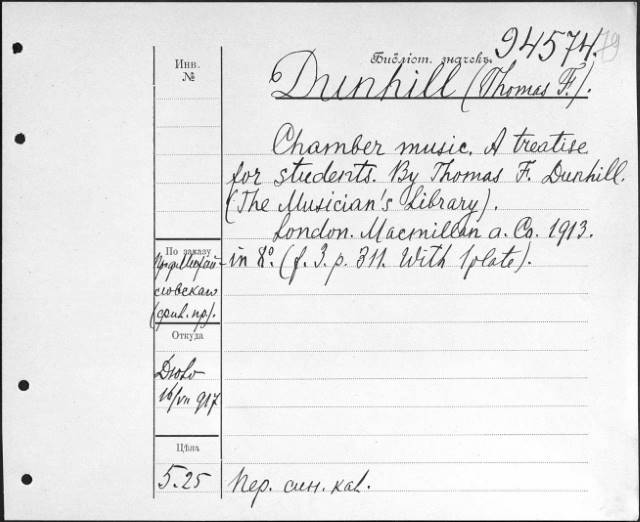 Библіот. значокъ 94574.
79
Инв.
№
Dunhill (Thomas F.).
Chamber music. A treatise
for students. By Thomas F. Dunhill.
(The Musician's Library).
London. Macmillan a. Co. 1913.
in 8°. (f. 3. p. 311. With 1 plate).
По заказу
Откуда
16/VII 917
Цѣна
5.25
Пер. син. кал.